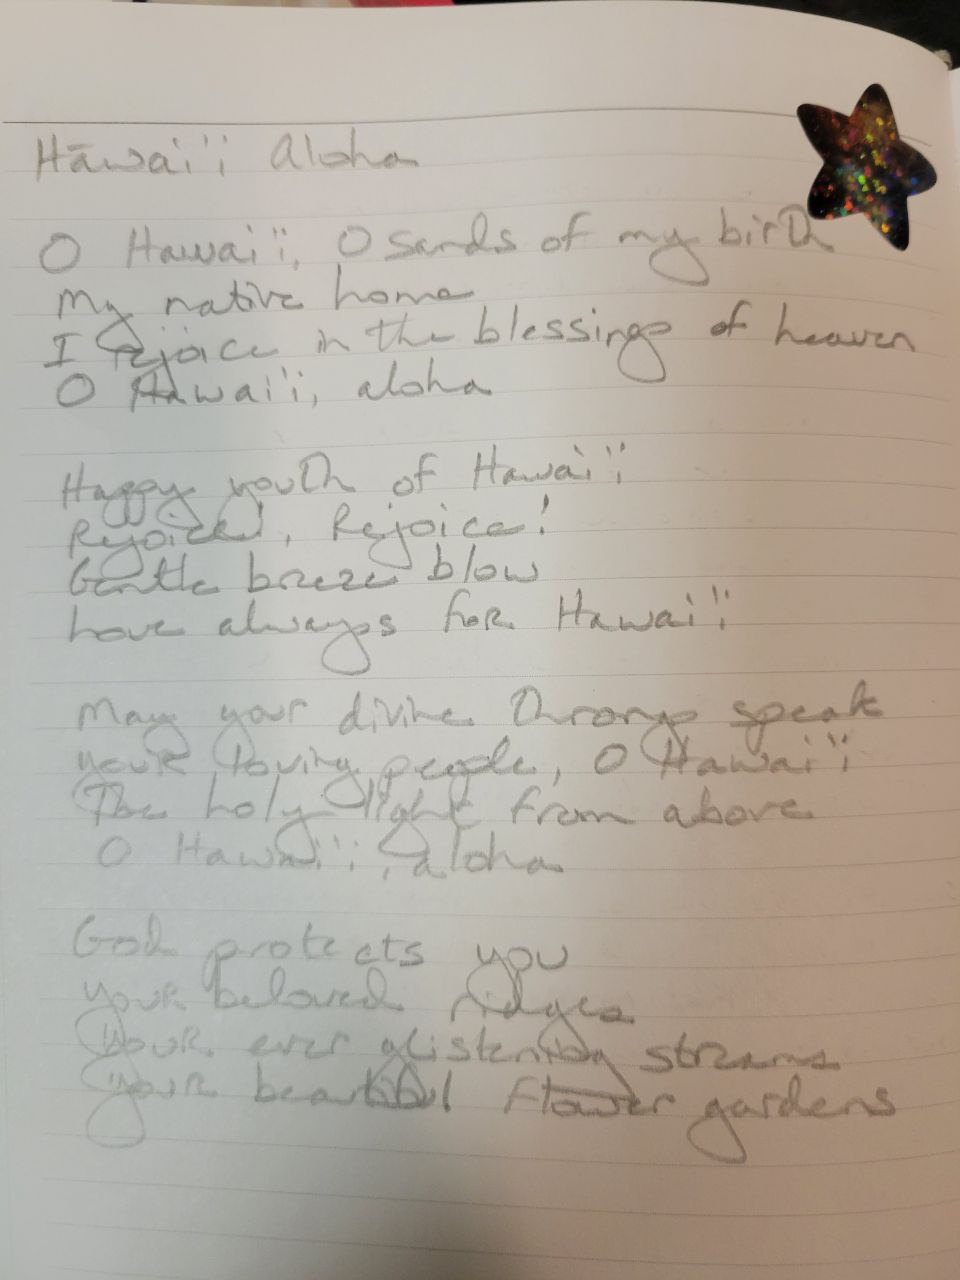 Hāwai'i Aloha
O Hawai'i, O sands of my birth
My native home
I rejoice in the blessings of heaven
O Hawai'i, aloha
Happy youth of Hawai'i
Rejoice!, Rejoice!
Gentle breeze blow
Love always for Hawai'i
May your divine throngs speak
your loving people, O Hawai'i
The holy light from above
O Hawai'i, aloha
God protects you
your beloved ridges
Your ever glistening streams
Your beautiful flower gardens